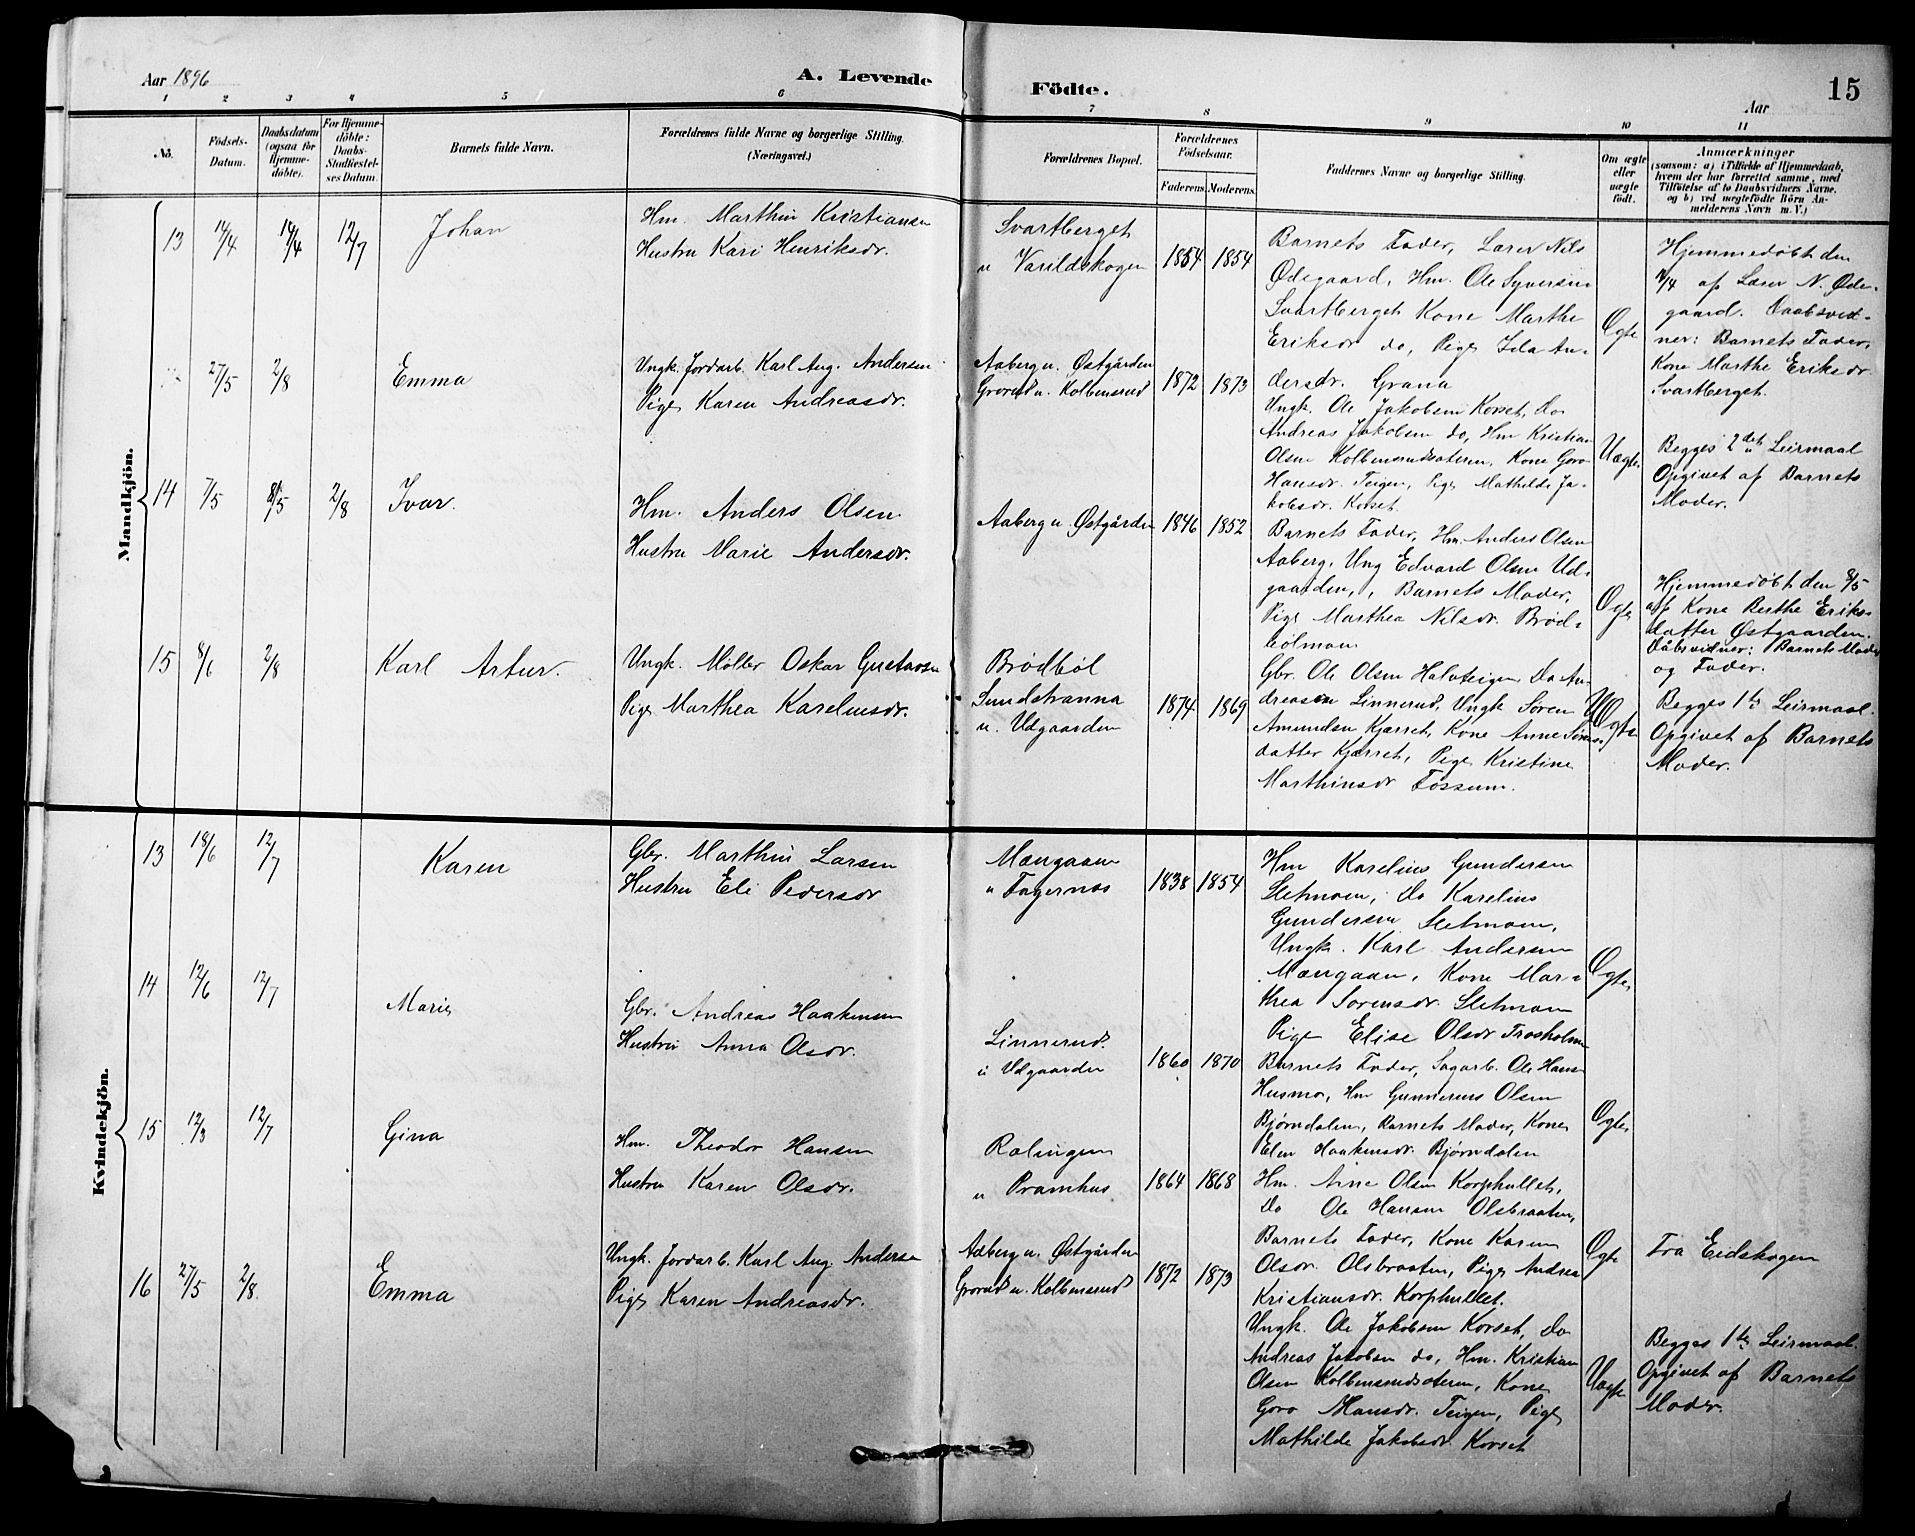 Aar 1896
A. Levende
Födte.
Aar
15
1 2 3 4 5 6 7 8 9 10 11
No.
Födsels-
Datum.
Daabsdatum
(ogsaa for
Hjemme-
döbte).
For Hjemme-
döbte:
Daabs-
Stadfæstel-
ses Datum.
Barnets fulde Navn.
Forældrenes fulde Navne og borgerlige Stilling.
(Næringsvei.)
Forældrenes Bopæl.
Forældrenes
Födselsaar.
Faderens. Moderens.
Faddernes Navne og borgerlige Stilling.
Om ægte
eller
uægte
födt.
Anmærkninger
(saasom: a) i Tilfælde af Hjemmedaab,
hvem der har forrettet samme, med
Tilföielse af to Daabsvidners Navne,
og b) ved uægtefödte Börn An-
melderens Navn m. V.)
Mandkjön.
13 14/4 14/4 12/7 Johan
Hm. Marthin Kristiansen
Hustru Kari Henriksdr.
Svartberget
u Varildskogen 1854 1854
Barnets Fader, Lærer Nils
Ødegaard, Hm. Ole Syversen
Svartberget, Kone Marthe
Eriksdr do, Pige Ida An-
dersdr. Grana
Ægte
Hjemmedøbt den
14/4 af Lærer N. Øde-
gaard. Daabsvid-
ner: Barnets Fader,
Kone Marthe Eriksdr
Svartberget.
27/5 2/8 Emma
Ungk. Jordarb. Karl Aug. Andersen
Pige Karen Andreasdr.
Aaberg u. Østgården
Grorud u. Kolbensrud 1872 1873
Ungk. Ole Jakobsen Korset, do
Andreas Jakobsen do, Hm Kristian
Olsen Kolbensrudsæteren, Kone Goro
Hansdr. Teigen, Pige Mathilde Ja-
kobsdr. Korset.
Uægte
Begges 2det Leiermaal
Opgivet af Barnets
Moder.
14 7/5 8/5 2/8 Ivar.
Hm. Anders Olsen
Hustru Marie Andersdr.
Aaberg u. Østgården 1846 1852
Barnets Fader, Hm. Anders Olsen
Aaberg, Ung Edvard Olsen Ud-
gaarden, Barnets Moder,
Pige Marthea Nilsdr. Brød-
bölmoen
Ægte
Hjemmedøbt den 8/5
af Kone Berthe Eriks-
datter Østgaarden.
Dåbsvidner: Barnets Moder
og Fader.
15 8/6 2/8 Karl Artur.
Ungk. Möller Oskar Gustavsen
Pige Marthea Kareliusdr.
Brødböl
Sundstranna
u. Udgaarden 1874 1869
Gbr. Ole Olsen Halvteigen, Do An-
dreasen Linnerud, Ungk Sören
Amundsen Kjærret, Kone Anne Sörens-
datter Kjærret, Pige Kristine
Marthinsdr Fossum.
Uægte
Begges 1te Leiermaal.
Opgivet af Barnets
Moder.
Kvindekjön.
13 18/6 12/7 Karen
Gbr. Marthin Larsen
Hustru Eli Pedersdr
Mængaaen
u Fagernæs 1838 1854
Hm Karelius Gundersen
Sletmoen, Do Karelius
Gundersen Sletmoen,
Ungk. Karl Andersen
Mængaaen, Kone Mar-
thea Sörensdr. Sletmoen
Pige Elise Olsdr Træsholmen
Ægte
14 12/6 12/7 Marie
Gbr. Andreas Haakensen
Hustru Anna Olsdr.
Linnerud
u Udgaarden 1860 1870
Barnets Fader, Sagarb. Ole Hansen
Husmo, Hm Gunnerius Olsen
Bjørndalen, Barnets Moder, Kone
Elen Haakensdr Bjørndalen
Ægte
15 12/3 12/7 Gina
Hm. Theodor Hansen
Hustru Karen Olsdr.
Rolingen
u Pramhus 1864 1868
Hm. Arne Olsen Korphullet,
Do Ole Hansen Olsbraaten,
Barnets Fader, Kone Karen
Olsdr. Olsbraaten, Pige Andrea
Kristiansdr. Korphullet.
Ægte
Fra Eidskogen
16 27/5 2/8. Emma
Ungk. Jordarb. Karl Aug. Andersen
Pige Karen Andreasdr.
Aaberg u. Østgården
Grorud u. Kolbensrud 1872 1873
Ungk. Ole Jakobsen Korset, do
Andreas Jakobsen do, Hm. Kristian
Olsen Kolbensrudsæteren, Kone
Goro Hansdr. Teigen, Pige
Mathilde Jakobsdr Korset
Uægte
Begges 1te Leiermaal.
Opgivet af Barnets
Moder.